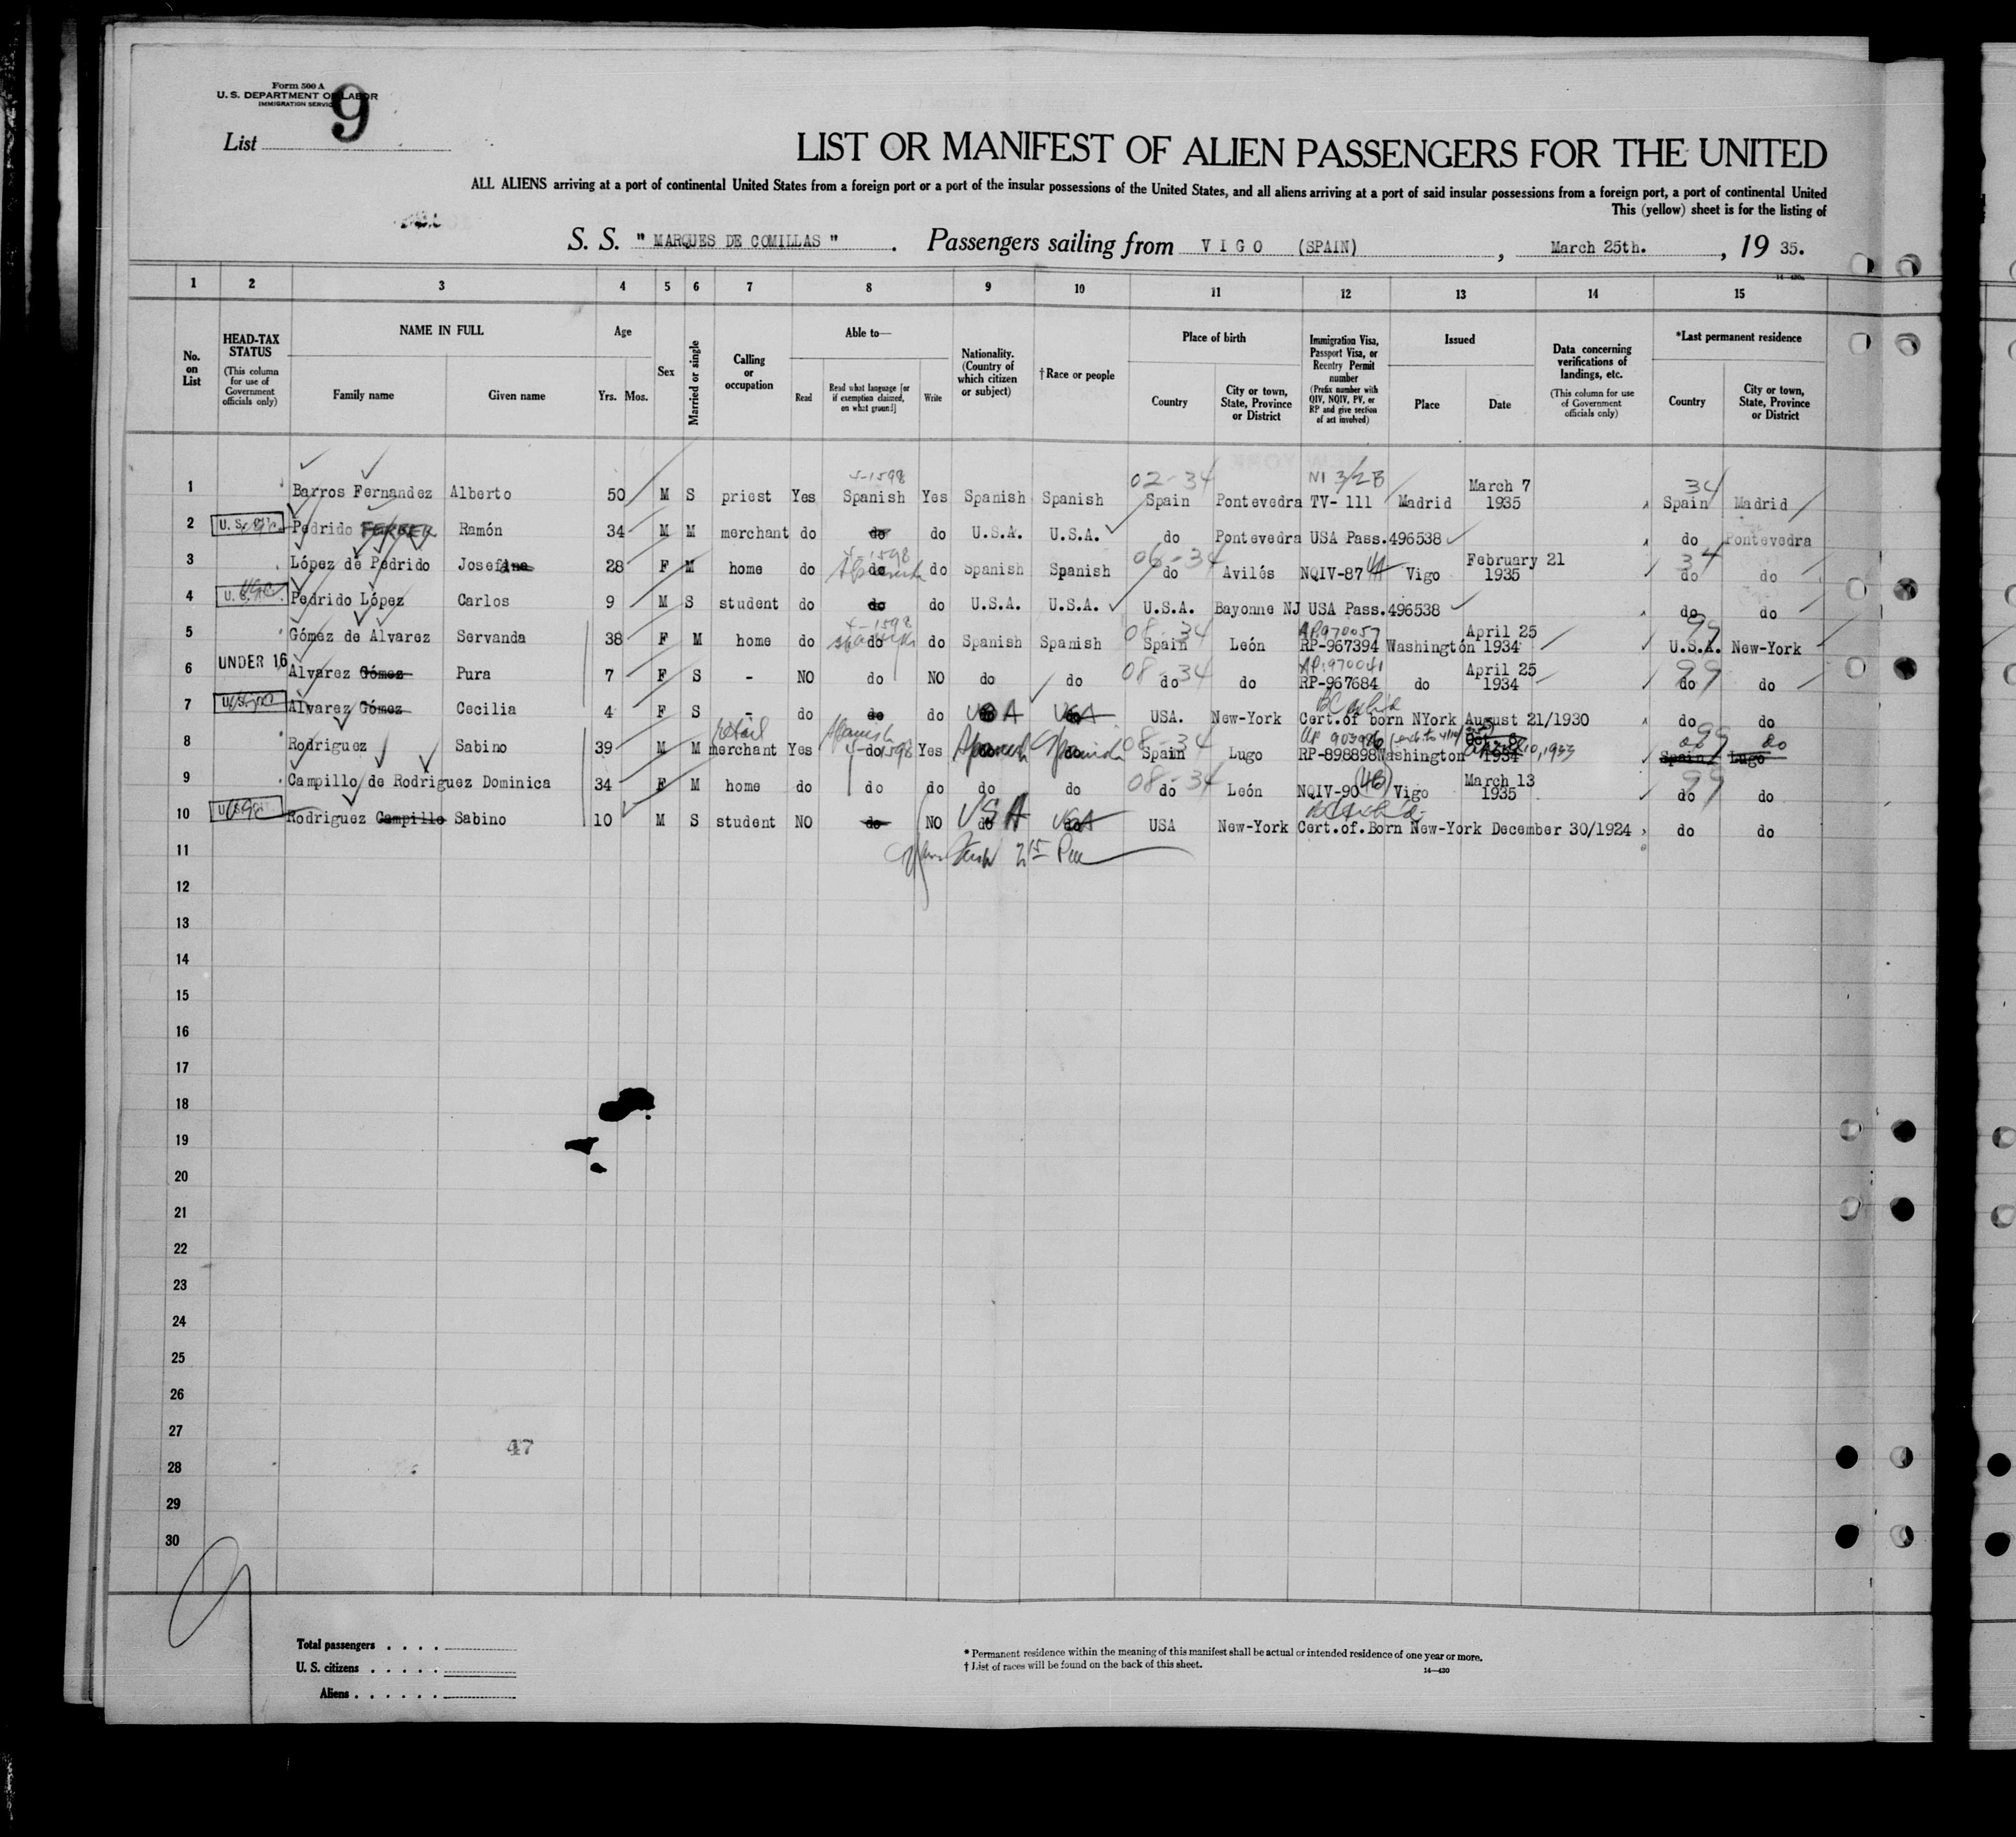 Form 500 A
U. S. DEPARTMENT OF LABOR
IMMIGRATION SERVICE
List 9
LIST OR MANIFEST OF ALIEN PASSENGERS FOR THE UNITED
ALL ALIENS arriving at a port of continental United States from a foreign port or a port of the insular possessions of the United States, and all aliens arriving at a port of said insular possessions from a foreign port, a port of continental United
This (yellow) sheet is for the listing of
S. S. " MARQUES DE COMILLAS " . Passengers sailing from V I G O (SPAIN) , March 25th. , 19 35.
1 2 3 4 5 6 7 8 9 10 11 12 13 14 15
No. on List
HEAD-TAX STATUS (This column for use of Government officials only)
NAME IN FULL Family name Given name
Age Yrs. Mos.
Sex
Married or single
Calling or occupation
Able to— Read Read what language [or if exemption claimed, on what ground] Write
Nationality. (Country of which citizen or subject)
†Race or people
Place of birth Country City or town, State, Province or District
Immigration Visa, Passport Visa, or Reentry Permit number (Prefix number with QIV, NQIV, PV, or RP and give section of act involved)
Issued Place Date
Data concerning verifications of landings, etc. (This column for use of Government officials only)
*Last permanent residence Country City or town, State, Province or District
4-1598 02-34 NI 3/2B 34
1 Barros Fernandez Alberto 50 M S priest Yes Spanish Yes Spanish Spanish Spain Pontevedra TV- 111 Madrid March 7 1935 Spain Madrid
2 Pedrido Ramón 34 M M merchant do do do U.S.A. U.S.A. do Pontevedra USA Pass.496538 do Pontevedra
4-1598 06-34 34
3 López de Pedrido Josefina 28 F M home do do Spanish do Spanish Spanish do Avilés NQIV-87 Vigo February 21 1935 do do
4 Pedrido López Carlos 9 M S student do do do U.S.A. U.S.A. U.S.A. Bayonne NJ USA Pass.496538 do do
4-1598 08-34 AP.970057 99
5 Gómez de Alvarez Servanda 38 F M home do do Spanish do Spanish Spanish Spain León RP-967394 Washington April 25 1934 U.S.A. New-York
UNDER 16 08-34 99
6 Alvarez Gómez Pura 7 F S - NO do NO do do do do RP-967684 do April 25 1934 do do
7 Alvarez Gómez Cecilia 4 F S - do do do USA USA USA. New-York Cert.of born NYork August 21/1930 do do
retail Spanish 4-1598 08-34 99 do
8 Rodriguez Sabino 39 M M merchant Yes do Yes Spanish Spanish Spain Lugo RP-898898 Washington 1934 Spain Lugo
08-34 99
9 Campillo de Rodriguez Dominica 34 F M home do do do do do do León NQIV-90 (4B) Vigo March 13 1935 do do
10 Rodriguez Campillo Sabino 10 M S student NO do NO USA USA USA New-York Cert.of.Born New-York December 30/1924 do do
11
12
13
14
15
16
17
18
19
20
21
22
23
24
25
26
27
47
28
29
30
9
Total passengers . . . .
U. S. citizens . . . . .
Aliens . . . . . .
* Permanent residence within the meaning of this manifest shall be actual or intended residence of one year or more.
† List of races will be found on the back of this sheet.
14—430